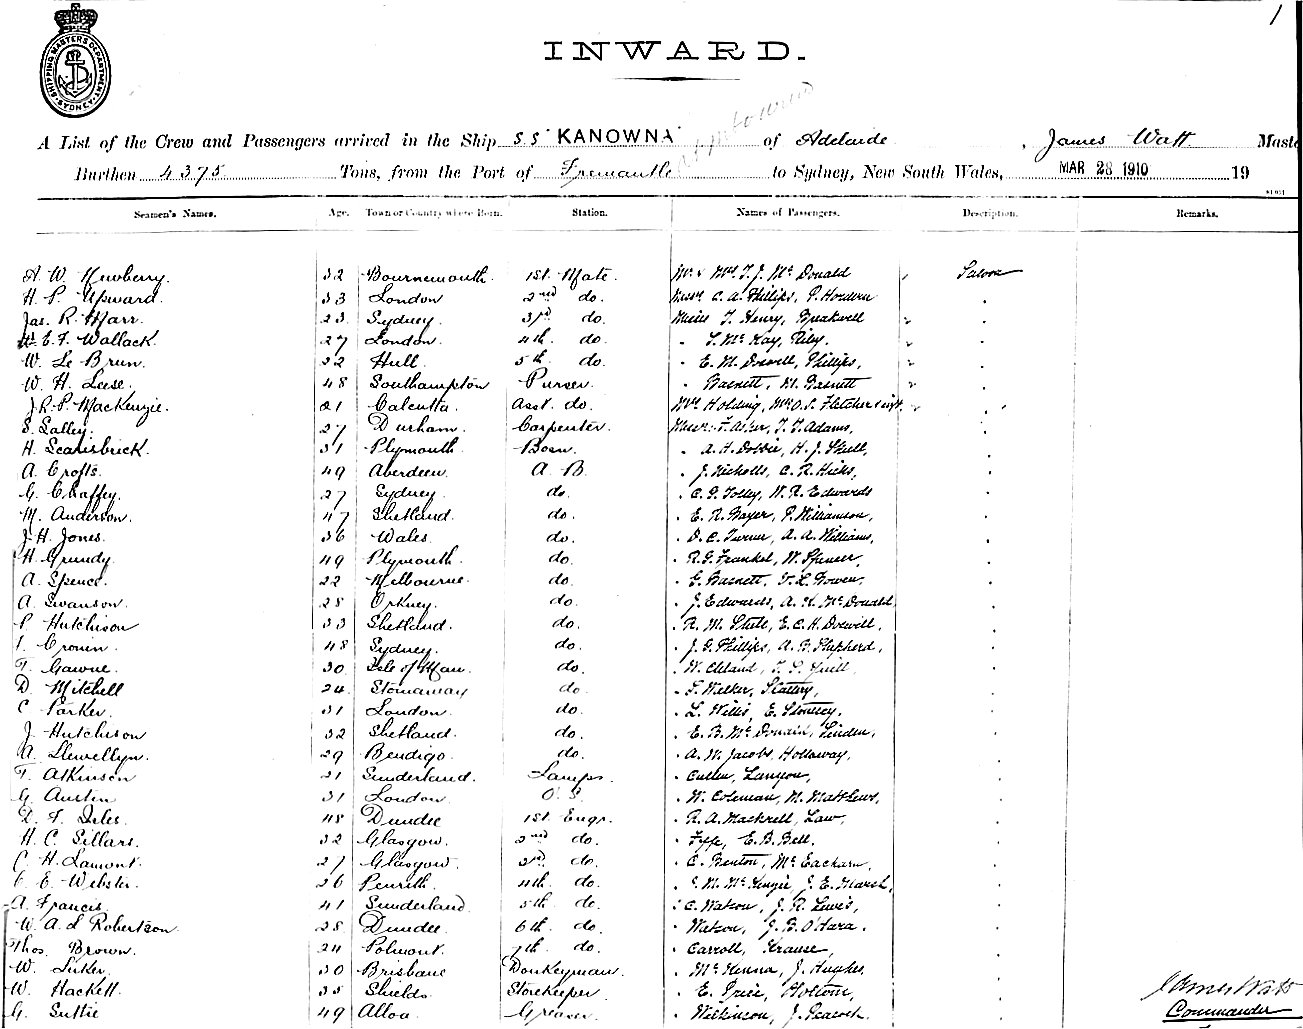 1
SHIPPING MASTERS DEPARTMENT
SYDNEY
INWARD.
A List of the Crew and Passengers arrived in the Ship SS KANOWNA of Adelaide, James Watt Maste
Burthen 4375 Tons, from the Port of Fremantle to Sydney, New South Wales, MAR 28 1910 19
Seamen's Names. Age. Town or Country where Born. Station. Names of Passengers. Description. Remarks.
A. W. Newberry. 32 Bournemouth 1st Mate. Mr & Mrs T. J. McDonald Saloon
H. P. Upward. 33 London 2nd do. Messrs C. A. Phillips, P.
Jas. R. Marr. 23 Sydney. 3rd do. Misses T. Henry, Breakwell
E. F. Wallack. 27 London. 4th do. McKay, Riley.
W. Le Brun. 22 Hull 5th do. E. M. Dowell, Phillips,
W. H. Leese. 48 Southampton Purser. Basnett, M. Basnett
J. R. P. MacKenzie. 21 Calcutta. Asst. do. Mrs Holding, Mrs O. S. Fletcher & inft.
S. Salley. 27 Durham. Carpenter Messrs F. Asher, T. J. Adams,
H. Scarisbrick. 31 Plymouth Bosn. A. H. Dobbie, H. J. Shell,
A. Crofts. 49 Aberdeen. A. B. J. Nicholls, C. R. Hicks,
G. Chaffey. 27 Sydney. do. C. G. Tolley, W. R. Edwards
M. Anderson. 47 Shetland. do. E. R. Gayer, P. Williamson,
J. H. Jones. 36 Wales. do. D. C. Turner, A. A. Williams,
H. Grundy. 49 Plymouth. do. R. G. Frankel, W. Spencer,
A. Spence. 22 Melbourne. do. E. Basnett, Bowen,
A. Swanson. 28 Orkney. do. J. Edwards, A. McDonald,
P. Hutchison 33 Shetland. do. R. M. Shell, E. C. H. Dowell,
Cronin. 48 Sydney. do. J. G. Phillips, A. B. Shepherd,
T. Gawne. 30 Isle of Man. do. W. Cleland, T. P. Quill,
D. Mitchell 24 Stornaway do T. Walker, Slattery,
C. Parker. 31 London. do. L. Willis, E.
J. Hutchison 32 Shetland. do. E. B. Linden,
A. Llewellyn. 29 Bendigo. do. A. W. Jacobs, Holloway,
T. Atkinson 21 Sunderland. Lamps. Cullen, Lanyon,
G. Austin 31 London O. S. W. Coleman, M. Matthews,
Isles. 48 Dundee 1st Engr. R. A. Mackrell, Law,
H. C. Sillars. 32 Glasgow. 2nd do. Fyfe, E. B. Bell.
C. H. Lamont. 27 Glasgow 3rd do. C. Benton, McEacharn,
E. Webster. 26 Penrith. 4th do. M. McKenzie, J. E. Marsh,
A. Francis. 41 Sunderland. 5th do. C. Watson, J. R. Lewis,
W. A. S. Robertson 28 Dundee. 6th do. Watson, J. B. O'Hara.
Thos. Brown. 24 Polmont. 7th do. Carroll, Krause,
W. Luther. 30 Brisbane Donkeyman. McKenna, J. Hughes,
W. Hackett. 35 Shields. Storekeeper E. Price, Holtom,
G. Suttie 49 Alloa. Greaser. Wilkinson, J. Peacock.
James Watt
Commander